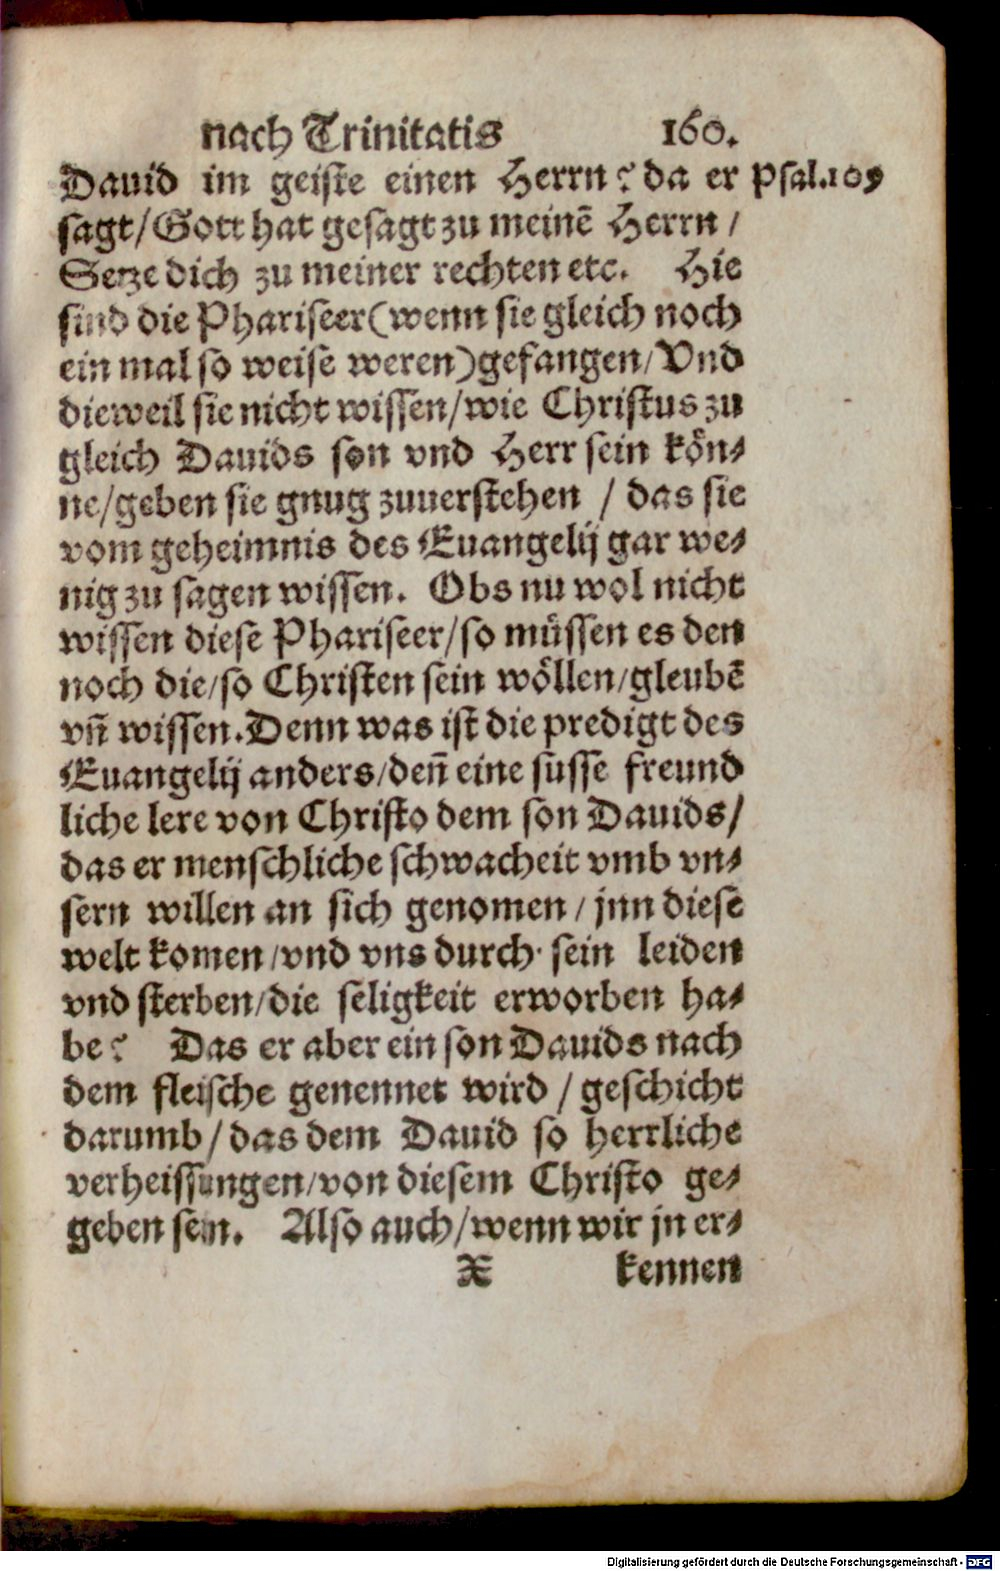 nach Trinitatis 160.
Dauid im geiste einen Herrn? da er Psal.109
sagt/Gott hat gesagt zu meinē Herrn /
Setze dich zu meiner rechten etc. Hie
sind die Phariseer(wenn sie gleich noch
ein mal so weise weren)gefangen/Vnd
dieweil sie nicht wissen/wie Christus zu
gleich Dauids son vnd Herr sein kön⸗
ne/geben sie gnug zuuerstehen / das sie
vom geheimnis des Euangelij gar we⸗
nig zu sagen wissen. Obs nu wol nicht
wissen diese Phariseer/so müssen es den
noch die/so Christen sein wöllen/gleubē
vn̄ wissen.Denn was ist die predigt des
Euangelij anders/den̄ eine süsse freund
liche lere von Christo dem son Dauids/
das er menschliche schwacheit vmb vn⸗
sern willen an sich genomen / jnn diese
welt komen/vnd vns durch sein leiden
vnd sterben/die seligkeit erworben ha⸗
be? Das er aber ein son Dauids nach
dem fleische genennet wird / geschicht
darumb/das dem Dauid so herrliche
verheissungen/von diesem Christo ge⸗
geben sein. Also auch/wenn wir jn er⸗
X kennen
Digitalisierung gefördert durch die Deutsche Forschungsgemeinschaft - DFG